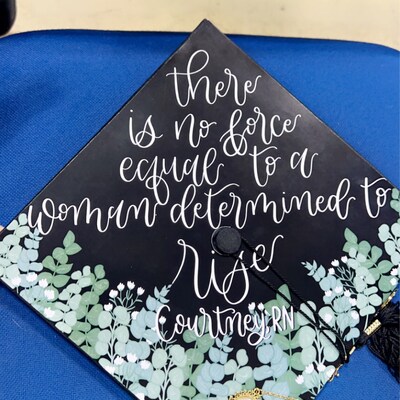 there
is no force
equal to a
woman determined to
rise
Courtney, RN